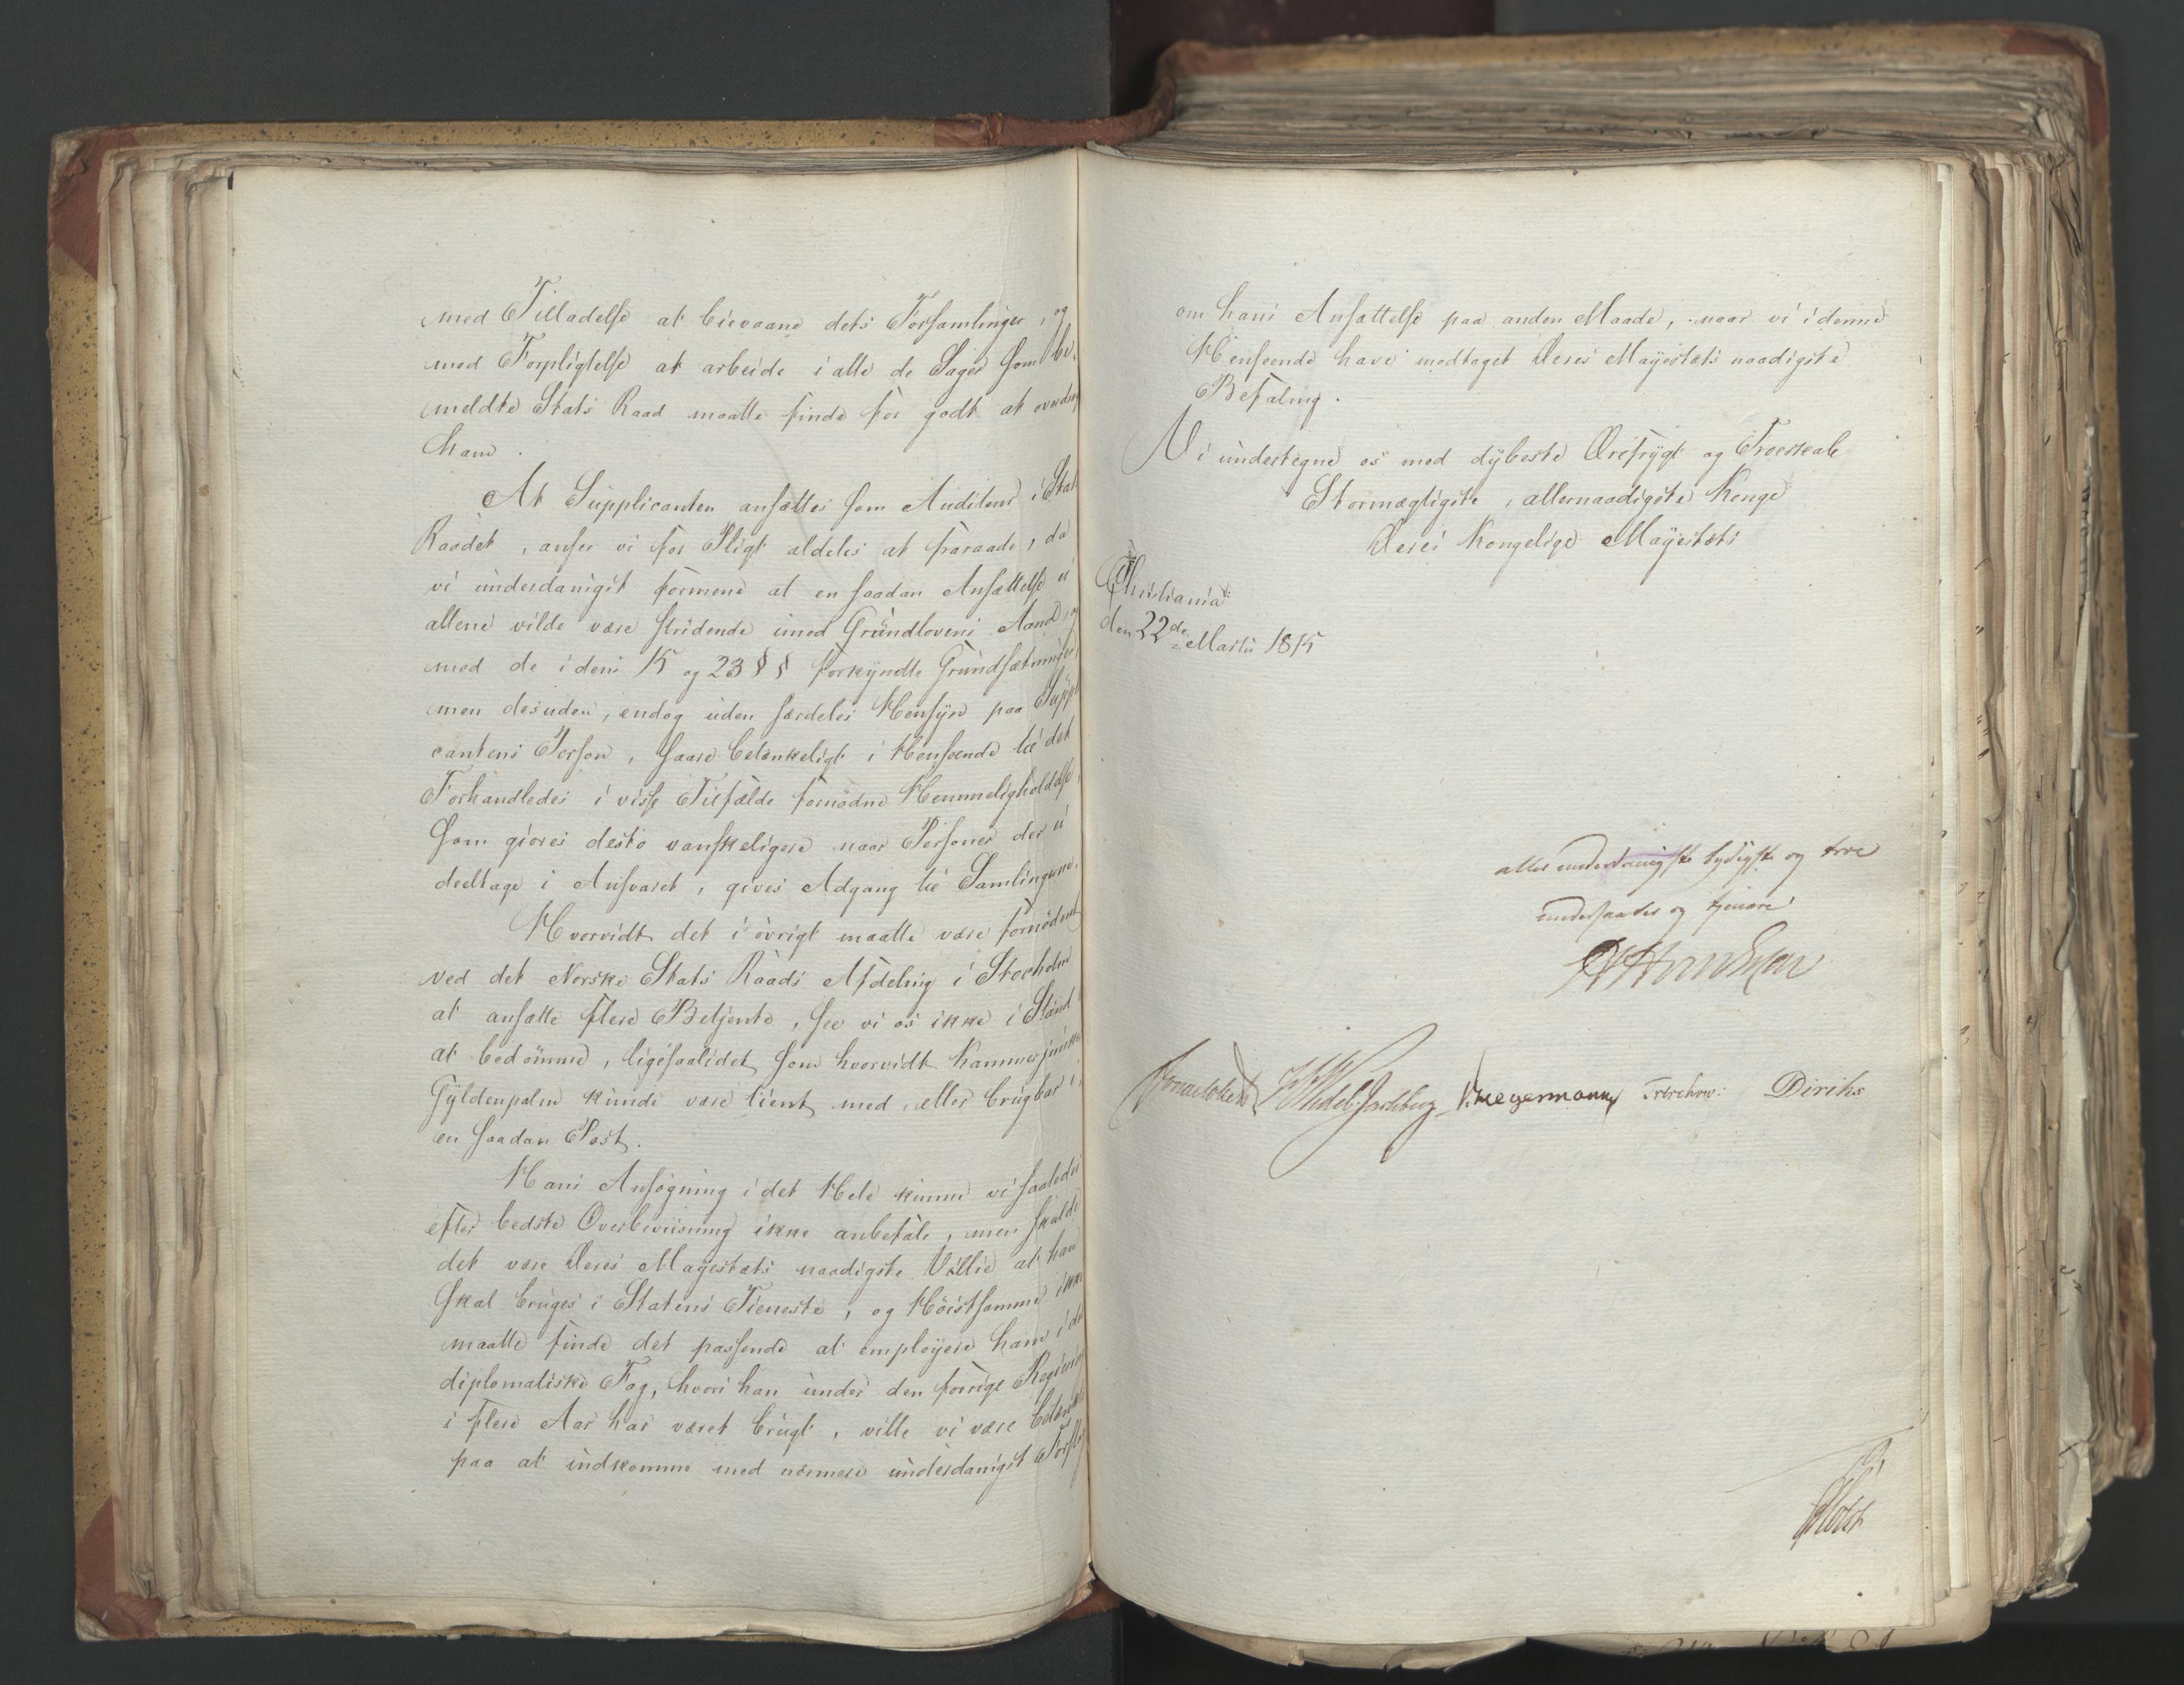 med Tilladelse at bievaane dets Forsamlinger, og
med Forpligtelse at arbeide i alle de Sager som be-
meldte Stats Raad maatte finde for godt at overdrag
ham.
At Supplicanten ansættes som Auditeur i Stat
Raadet, ansee vi for Pligt aldeles at fraraade, da
vi underdanigst formene at en saadan Ansættelse ei
allene vilde være stridende imod Grundlovens Aand og
mod de i dens 15 og 23 § § forkyndte Grundsætninger,
men desuden, endog uden særdeles Hensyn paa Suppli
cantens Person, saare betænkeligt i Henseende til det
Forhandledes i visse Tilfælde fornødne Hemmeligholdelse,
som giøres desto vanskeligere naar Personer der ei
deeltage i Ansvaret, gives Adgang til Samlingerne.
Hvorvidt det i øvrigt maatte være fornødent
ved det Norske Stats Raads Afdeling i Stocholm
at ansætte flere Betjente, see vi os ikke i Stand
at bedømme, ligesaalidet som hvorvidt Kammerjunker
Gyldenpalm kunde være tient med, eller brugbar i,
en saadan Post.
Hans Ansøgning i det Hele kunne vi saaledes
efter bedste Overbeviisning ikke anbefale, men skulde
det være Deres Mayestæts naadigste Villie at han
skal bruges i Statens Tieneste, og Høistsamme ikke
maatte finde det passende at employere ham i det
diplomatiske Fag, hvori han under den forrige Regiering
i flere Aar har været brugt, ville vi være betænkte
paa at indkomme med nærmere underdanigst Forslag
om hans Ansættelse paa anden Maade, naar vi i denne
Henseende have modtaget Deres Mayestæts naadigste
Befaling.
Vi undertegne os med dybeste Ærefrygt og Troeskab
Stormægtigste, allernaadigste Konge
Deres Kongelige Mayestæts
Christiania
den 22de Martii 1815
aller underdanigste lydigste og troe
undersaatter og tjenere
Sommerhielm Wedel Jarlsberg Hegermann Treschow: Diriks
Holst